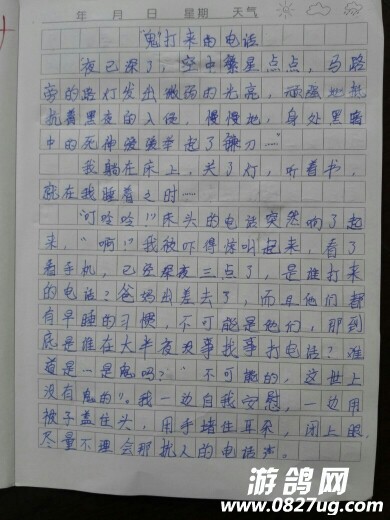 年 月 日 星期 天气
“鬼”打来的电话
夜已深了，空中繁星点点，马路
旁的路灯发出微弱的光亮，顽强地抵
抗着黑夜的入侵，慢慢地，身处黑暗
中的死神缓缓举起了镰刀……
我躺在床上，关了灯，听着书，
就在我睡着之时……
“叮呤呤！”床头的电话突然响了起
来，“啊！”我被吓得惊叫起来，看了
看手机，已经是夜三点了，是谁打来
的电话？爸妈出差去了，而且他们都
有早睡的习惯，不可能是他们，那到
底是谁在大半夜没事找事打电话？难
道是…是鬼吗？“不可能的，这世上
没有鬼的”。我一边自我安慰，一边用
被子盖住头，用手堵住耳朵，闭上眼，
尽量不理会那扰人的电话声。
游鸽网
www.0827ug.com